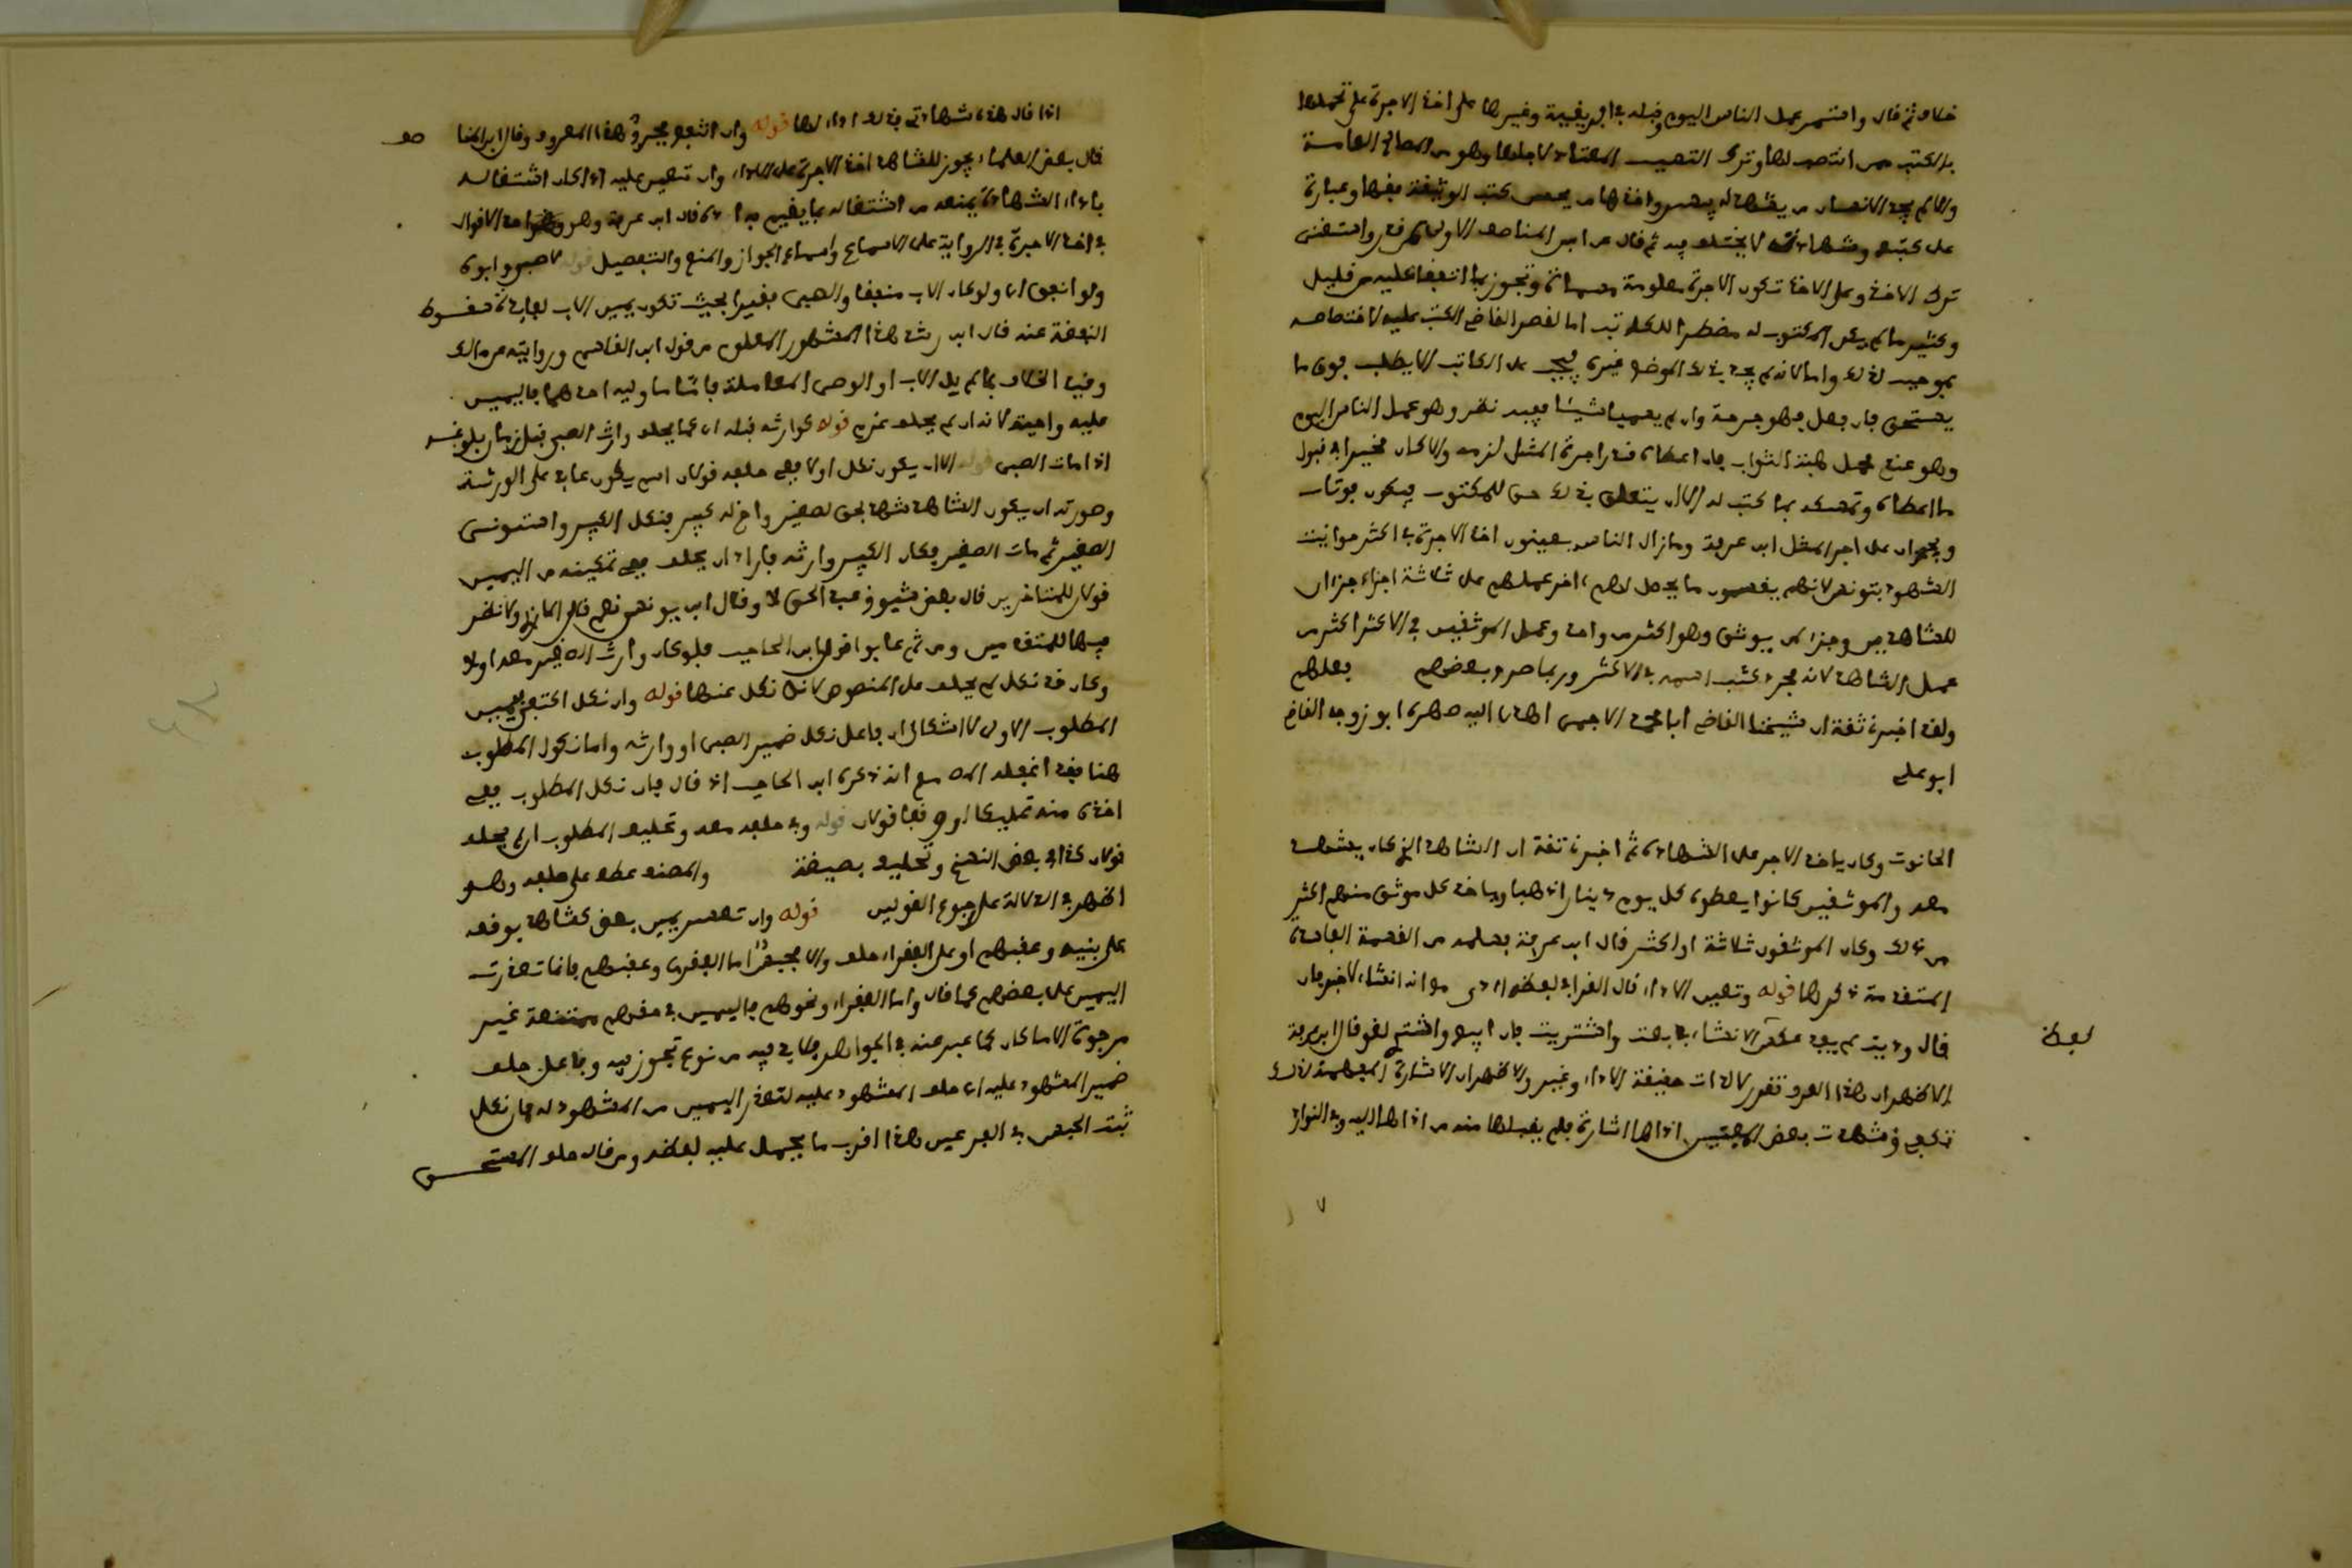 خلاف ثم قال واستمر عمل الناس اليوم وقبله في افريقية وغيرها على اخذ الاجرة على تحملها
بالكتب ممن انتصب لها وترك التسبب المعتاد لاجلها وهو من المصالح العامة
والا لم يجد الانسان من يشهد له بيسر واخذها من يحسن كتب الوثيقة فقها وعبارة
على كتبه وشهادته لا يختلف فيه ثم قال عن ابن المناصف الاولى لمن قدر واستغنى
ترك الاخذ وعلى الاخذ تكون الاجرة معلومة مسماة وتجوز بما اتفقا عليه من قليل
وكثير ما لم يكن المكتوب له مضطرا للكاتب اما لقصر القاضي الكتب عليه لاختصاصه
بموجب لذلك واما لانه لم يجد بذلك الموضع غيره فيجب على الكاتب الا يطلب فوق ما
يستحق فان فعل فهو جرحة وان لم يسميا شيئا ففيه نظر وهو عمل الناس اليوم
وهو عندي محمل هبة الثواب فان اعطاه قدر اجرة المثل لزمه والا كان مخيرا في قبول
ما اعطاه وتمسكه بما كتب له الا ان يتعلق بذلك حق للمكتوب فيكون فوتا
ويجبران على اجر المثل ابن عرفة وما زال الناس يعيبون اخذ الاجرة في اكثر حوانيت
الشهود بتونس لانهم يقسمون ما يحصل لهم اخر عملهم على ثلاثة اجزاء جزءان
للشاهدين وجزء لمن يوثق وهو اكثر من واحد وعمل الموثقين في الاكثر اكثر من
عمل الشاهد لانه مجرد كتب اسمه في الاكثر وربما صرح بعضهم بعلمهم
ولقد اخبرني ثقة ان شيخنا القاضي ابا محمد الاجمي اهدى اليه صهره ابو زوجه القاضي
ابو علي
الحانوت وكان ياخذ الاجر على الشهادة ثم اخبرني ثقة ان الشاهد الذي كان يشهد
معه والموثقين كانوا يعطونه كل يوم دينارا ذهبا وياخذ كل موثق منهم اكثر
من ذلك وكان الموثقون ثلاثة او اكثر قال ابن عرفة بعلمه من القسمة الفاسدة
المتقدمة ذكرها قوله وتعين الاداء قال القرافي لفظه ادى مع انه انشاء لاخبر فان
قال وديت لم يفد عكس الانشاء في بعت واشتريت فان ابيع واشتري لغو قال ابن عرفة
الاظهر ان هذا العرف تقرر لا لذات حقيقة الاداء وغيره والاظهر ان الاشارة المفهمة ذلك
تكفي وشهدت بعض المفتين اداها اشارة فلم يقبلها منه من اداها اليه وفي النوادر
لفظ
اذا قال هذه شهادتي فذلك اداء لها قوله وان انتفع فجرح هذا المعروف وقال ابن المنا صف
قال بعض العلماء يجوز للشاهد اخذ الاجرة على الاداء وان تعين عليه اذا كان اشتغاله
باداء الشهادة يمنعه من اشتغاله بما يقيم به اوده قال ابن عرفة وهو احد الاقوال
في اخذ الاجرة في الرواية على الاسماع والسماع الجواز والمنع والتفصيل قوله لا صبي وابوه
ولو انفق اي ولو كان الاب منفقا والصبي فقيرا بحيث تكون يمين الاب لفائدة سقوط
النفقة عنه قال ابن رشد هذا المشهور المعلوم من قول ابن القاسم وروايته عن مالك
وفيه الخلاف بما لم يل الاب او الوصي المعاملة فاما ما وليه احدهما فاليمين
عليه واجبة لانه ان لم يحلف غرم قوله كوارثه قبله اي كما يحلف وارث الصبي قبل زمان بلوغه
اذا مات الصبي قوله الا ان يكون نكل اولا ففي حلفه قولان اسم يكون عائد على الورثة
وصورته ان يكون الشاهد شهد بحق لصغير واخ له كبير فنكل الكبير واستوني
الصغير ثم مات الصغير فكان الكبير وارثه فاراد ان يحلف ففي تمكينه من اليمين
قولان للمتاخرين قال بعض شيوخ عبد الحق لا وقال ابن يونس نعم قال المازري ولا نص
فيها للمتقدمين ومن ثم عابوا قول ابن الحاجب فلو كان وارث الصغير معه اولا
وكان قد نكل لم يحلف على المنصوص لانه نكل عنها قوله وان نكل اكتفي بيمين
المطلوب الاولى لا اشكال ان فاعل نكل ضمير الصبي او وارثه واما نكول المطلوب
هنا فقد اغفله المص مع انه ذكره ابن الحاجب اذ قال فان نكل المطلوب ففي
اخذه منه تمليكا او وقفا قولان قوله وفي حلفه معه وتحليف المطلوب ان لم يحلف
قولان كذا في بعض النسخ وتحليف بصيغة والمصدر عطف على حلفه وهو
اظهر في الدلالة على رجوع القولين قوله وان تعسر يمين بعض كشاهد بوقف
على بنيه وعقبهم او على الفقراء حلف والا فحبس اما الفقراء وعقبهم فانما تعذرت
اليمين على بعضهم كما قال واما الفقراء ونحوهم فاليمين في حقهم ممتنعة غير
مرجوة الا ما كان كما عبر عنه في الجواهر فما في فيه من نوع تجوز فيه وفاعل حلف
ضمير المشهود عليه اي حلف المشهود عليه لتعذر اليمين من المشهود له فان نكل
ثبت الحبس في الفرعين هذا اقرب ما يحمل عليه لفظه ومن قال حلف المستحق